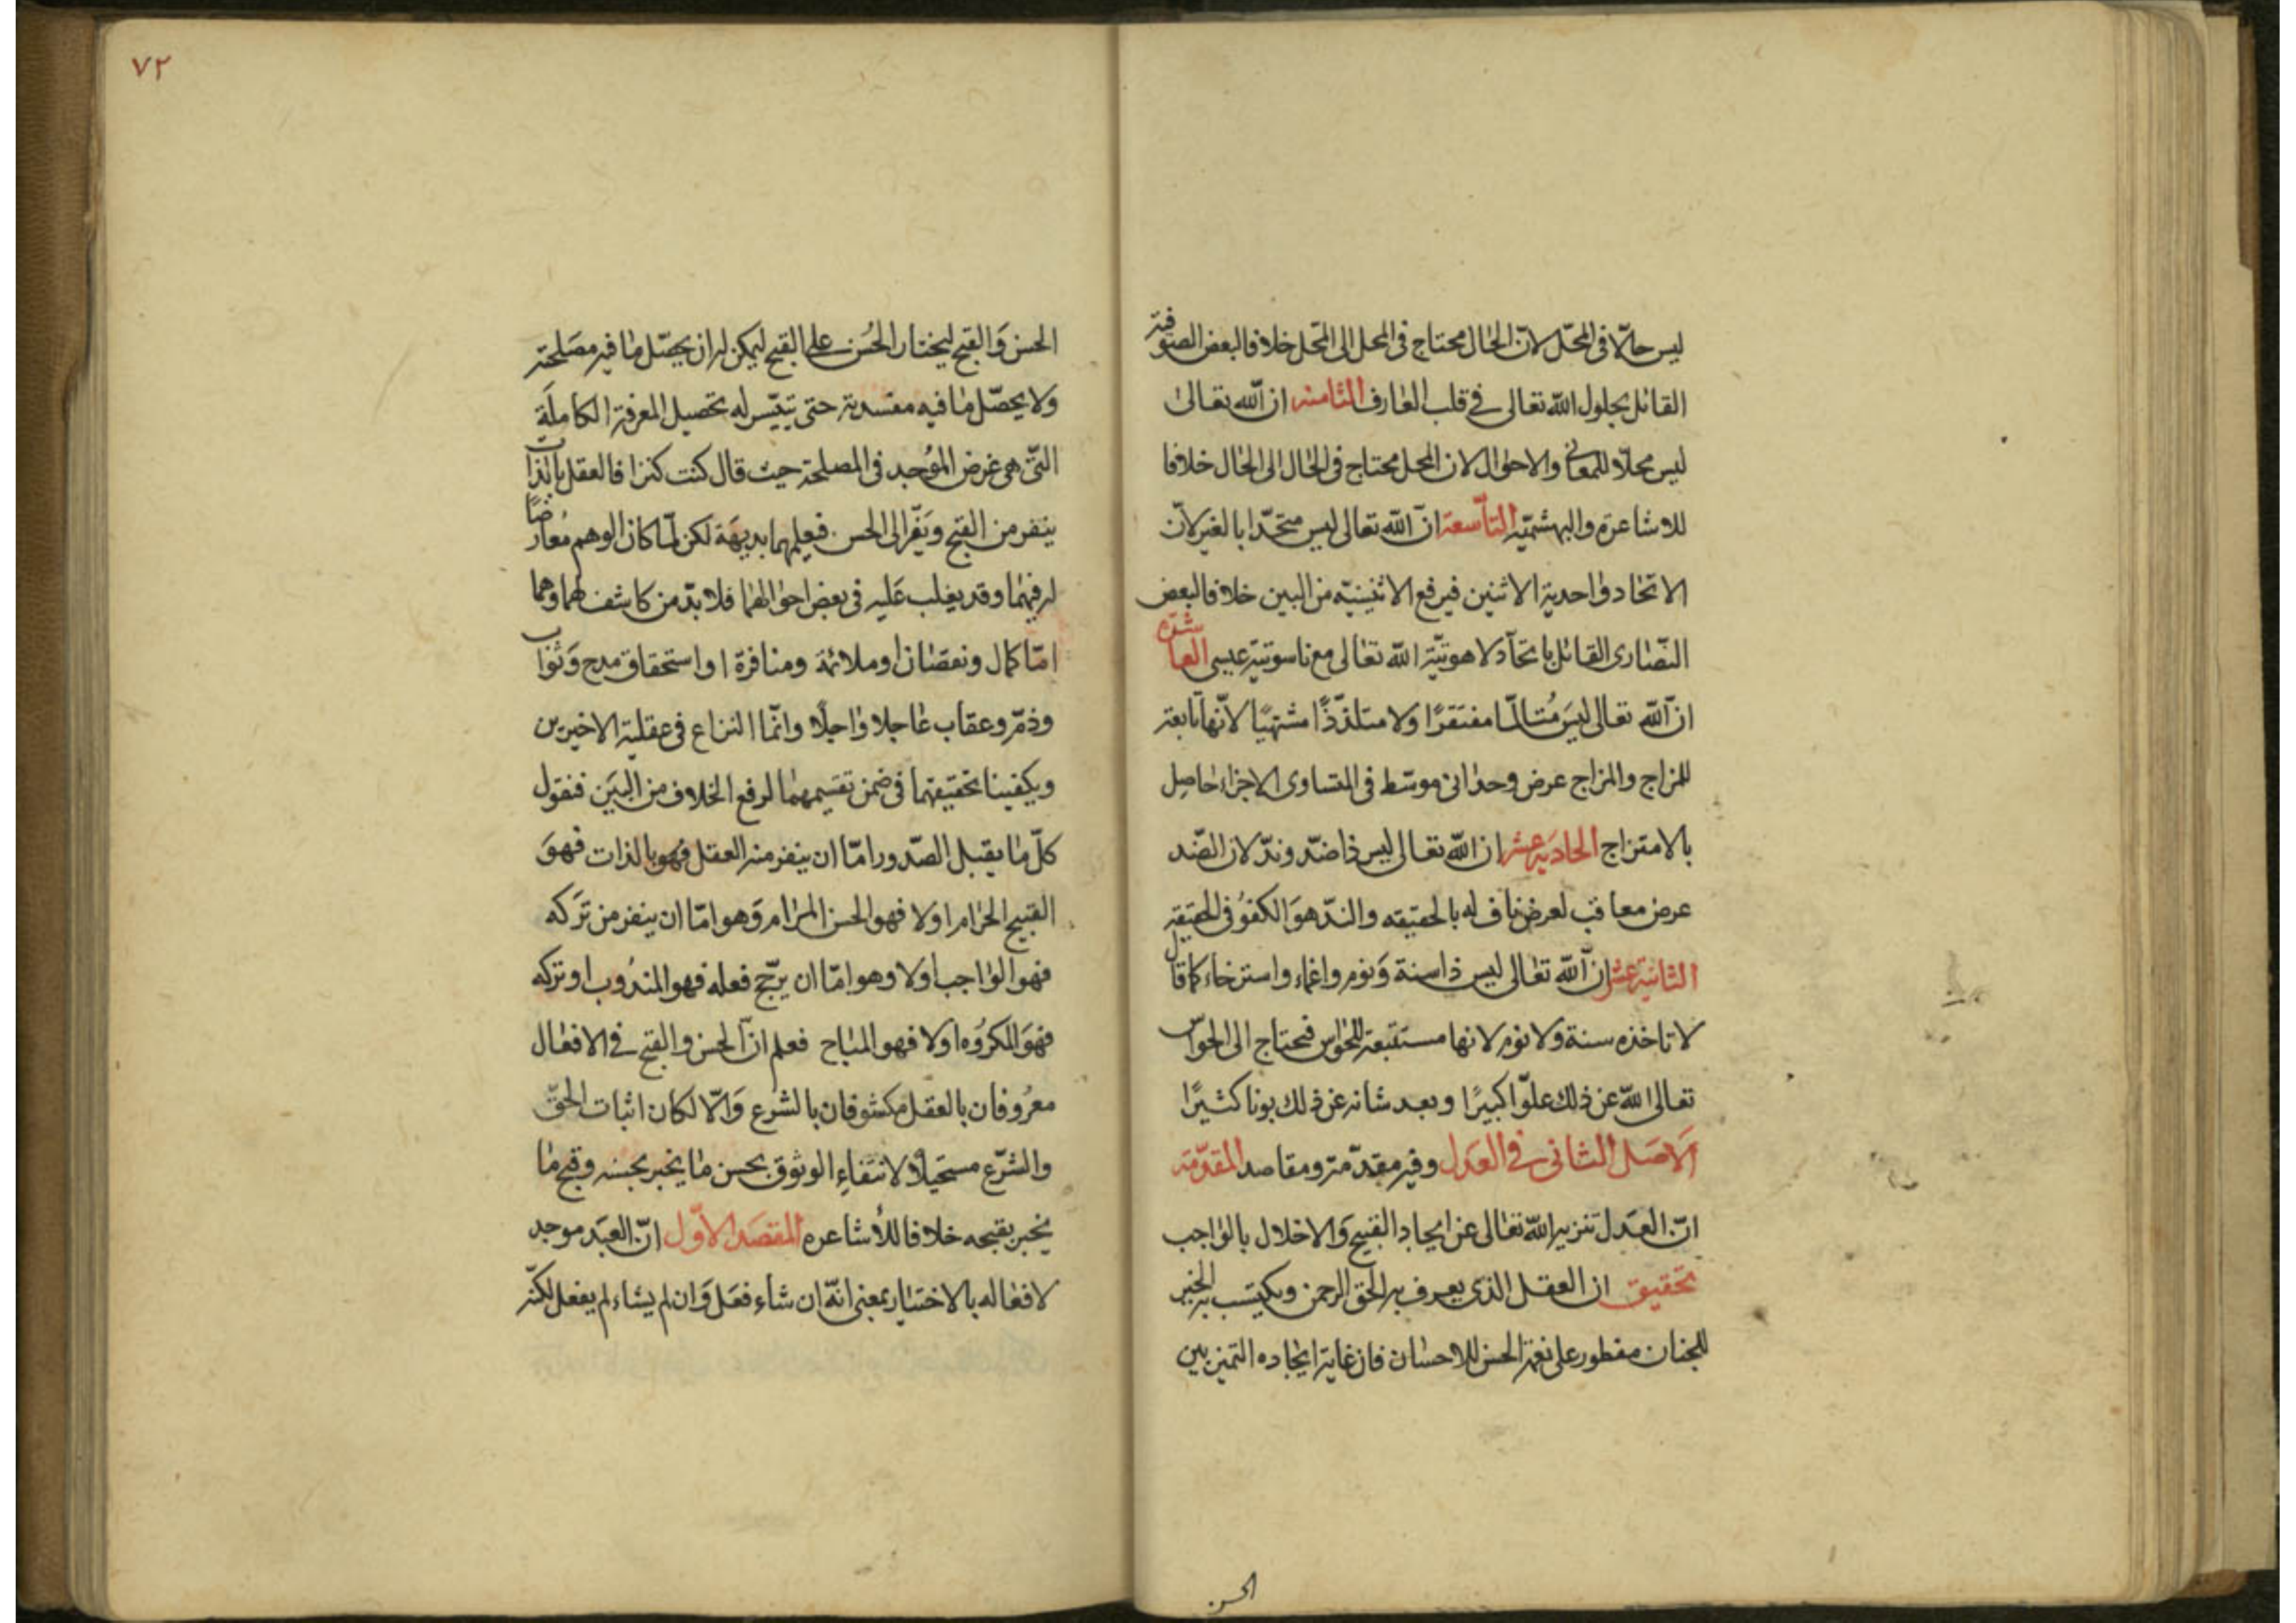 ليس حالّا فى المحلّ لانّ الحال محتاج فى المحل الى المحل خلافا لبعض الصوفية
القائل بحلول الله تعالى فى قلب العارف الثامنه ان الله تعالى
ليس محلّا للمعانى والاحوال لان المحل محتاج فى الحال الى الحال خلافا
للاشاعره والبهشميّه التاسعة انّ الله تعالى ليس متحّدا بالغير لانّ
الاتحاد واحدية الاثنين فيرفع الاثنينيّه من البين خلافا لبعض
النّصارى القائل باتحّاد لاهوتيّة الله تعالى مع ناسوتيّة عيسى العاشره
انّ الله تعالى ليسَ مُتالّما مفتقرًا ولا متلذّذًا مشتهيًا لانّها تابعة
للمزاج والمزاج عرض وحدانى موسّط فى المتساوى الاجزاء حاصِل
بالامتزاج الحاديةعشر ان الله تعالى ليس ذا ضدّ وندّ لان الضّد
عرض معاقب لعرض ناف له بالحقيقه والندّ هوَ الكفوُ فى الحقيقة
الثانيةعشر انّ الله تعالى ليس ذا سنة وَنوم واغماء واسترخاء كما قال
لا تاخذه سنة ولا نوم لانها مستتبعة للحواس فيحتاج الى الحواس
تعالى الله عن ذلك علوّا كبيرًا وبعد شانه عن ذلك بونا كثيرًا
الاصَل الثانى فى العَدل وفيه مقدّمة ومقاصد المقدّمة
انّ العَدل تنزيه الله تعالى عن ايجاد القبيح وَالاخلال بالواجب
تحقيق ان العقل الذى يعرف به الحق الرحمن ويكتسب به الخير
للجنان مفطور على نعمة الحسن للاحسان فان غاية ايجاده التميز بين
الحسن
٧٢
الحسن وَالقبح ليختار الحُسن على القبح ليمكن له ان يحصّل ما فيه مصَلحة
ولا يحصّل ما فيه مفسدية حتى يتيّسر له تحصيل المعرفة الكاملَة
التّى هى غرض المؤجد فى المصلحة حيث قال كنت كنزا فالعقل بالذات
ينفر من القبح ويَفّر الى الحسن فيعلمهما بديهَة لكن لمّا كان الوهم مُعارضًا
له فيهما وقد يغلب عَليه فى بعض احوالهما فلا بدّ من كاشف لهما وهما
امّا كمال ونقصَان او ملائمة ومنافرة او استحقاق مدح وَثواب
وذمّ وعقاب عاجلا واجلًا وانّما النزاع فى عقلية الاخيرين
ويكفينا تحقيقهما فى ضمن تقسيمهما لرفع الخلاف من البَين فنقول
كلّ ما يقبل الصّدور امّا ان ينفر منه العقل فهو بالذات فهوَ
القبيح الحرام اولا فهو الحسن المرام وَهو امّا ان ينفر من تَركه
فهو الواجب اولا وهو امّا ان يرجّح فعله فهو المندُوب او تركه
فهوَ المكرُوه اولا فهو المباح فعلم انّ الحسن والقبح فى الافعال
معرُوفان بالعقل مكشوفان بالشرع وَالّا لكان اثبات الحقّ
والشرّع مستحيلًا لانتفاءِ الوثوق بحسن ما يخبر بحسنه وقبح ما
يخبر بقبحه خلافا للأشاعره المقصَد الاوّل انّ العبَد موجد
لافعاله بالاختيار بمعنى انهّ ان شاء فعَل وَان لم يشاء لم يفعل لكنّه